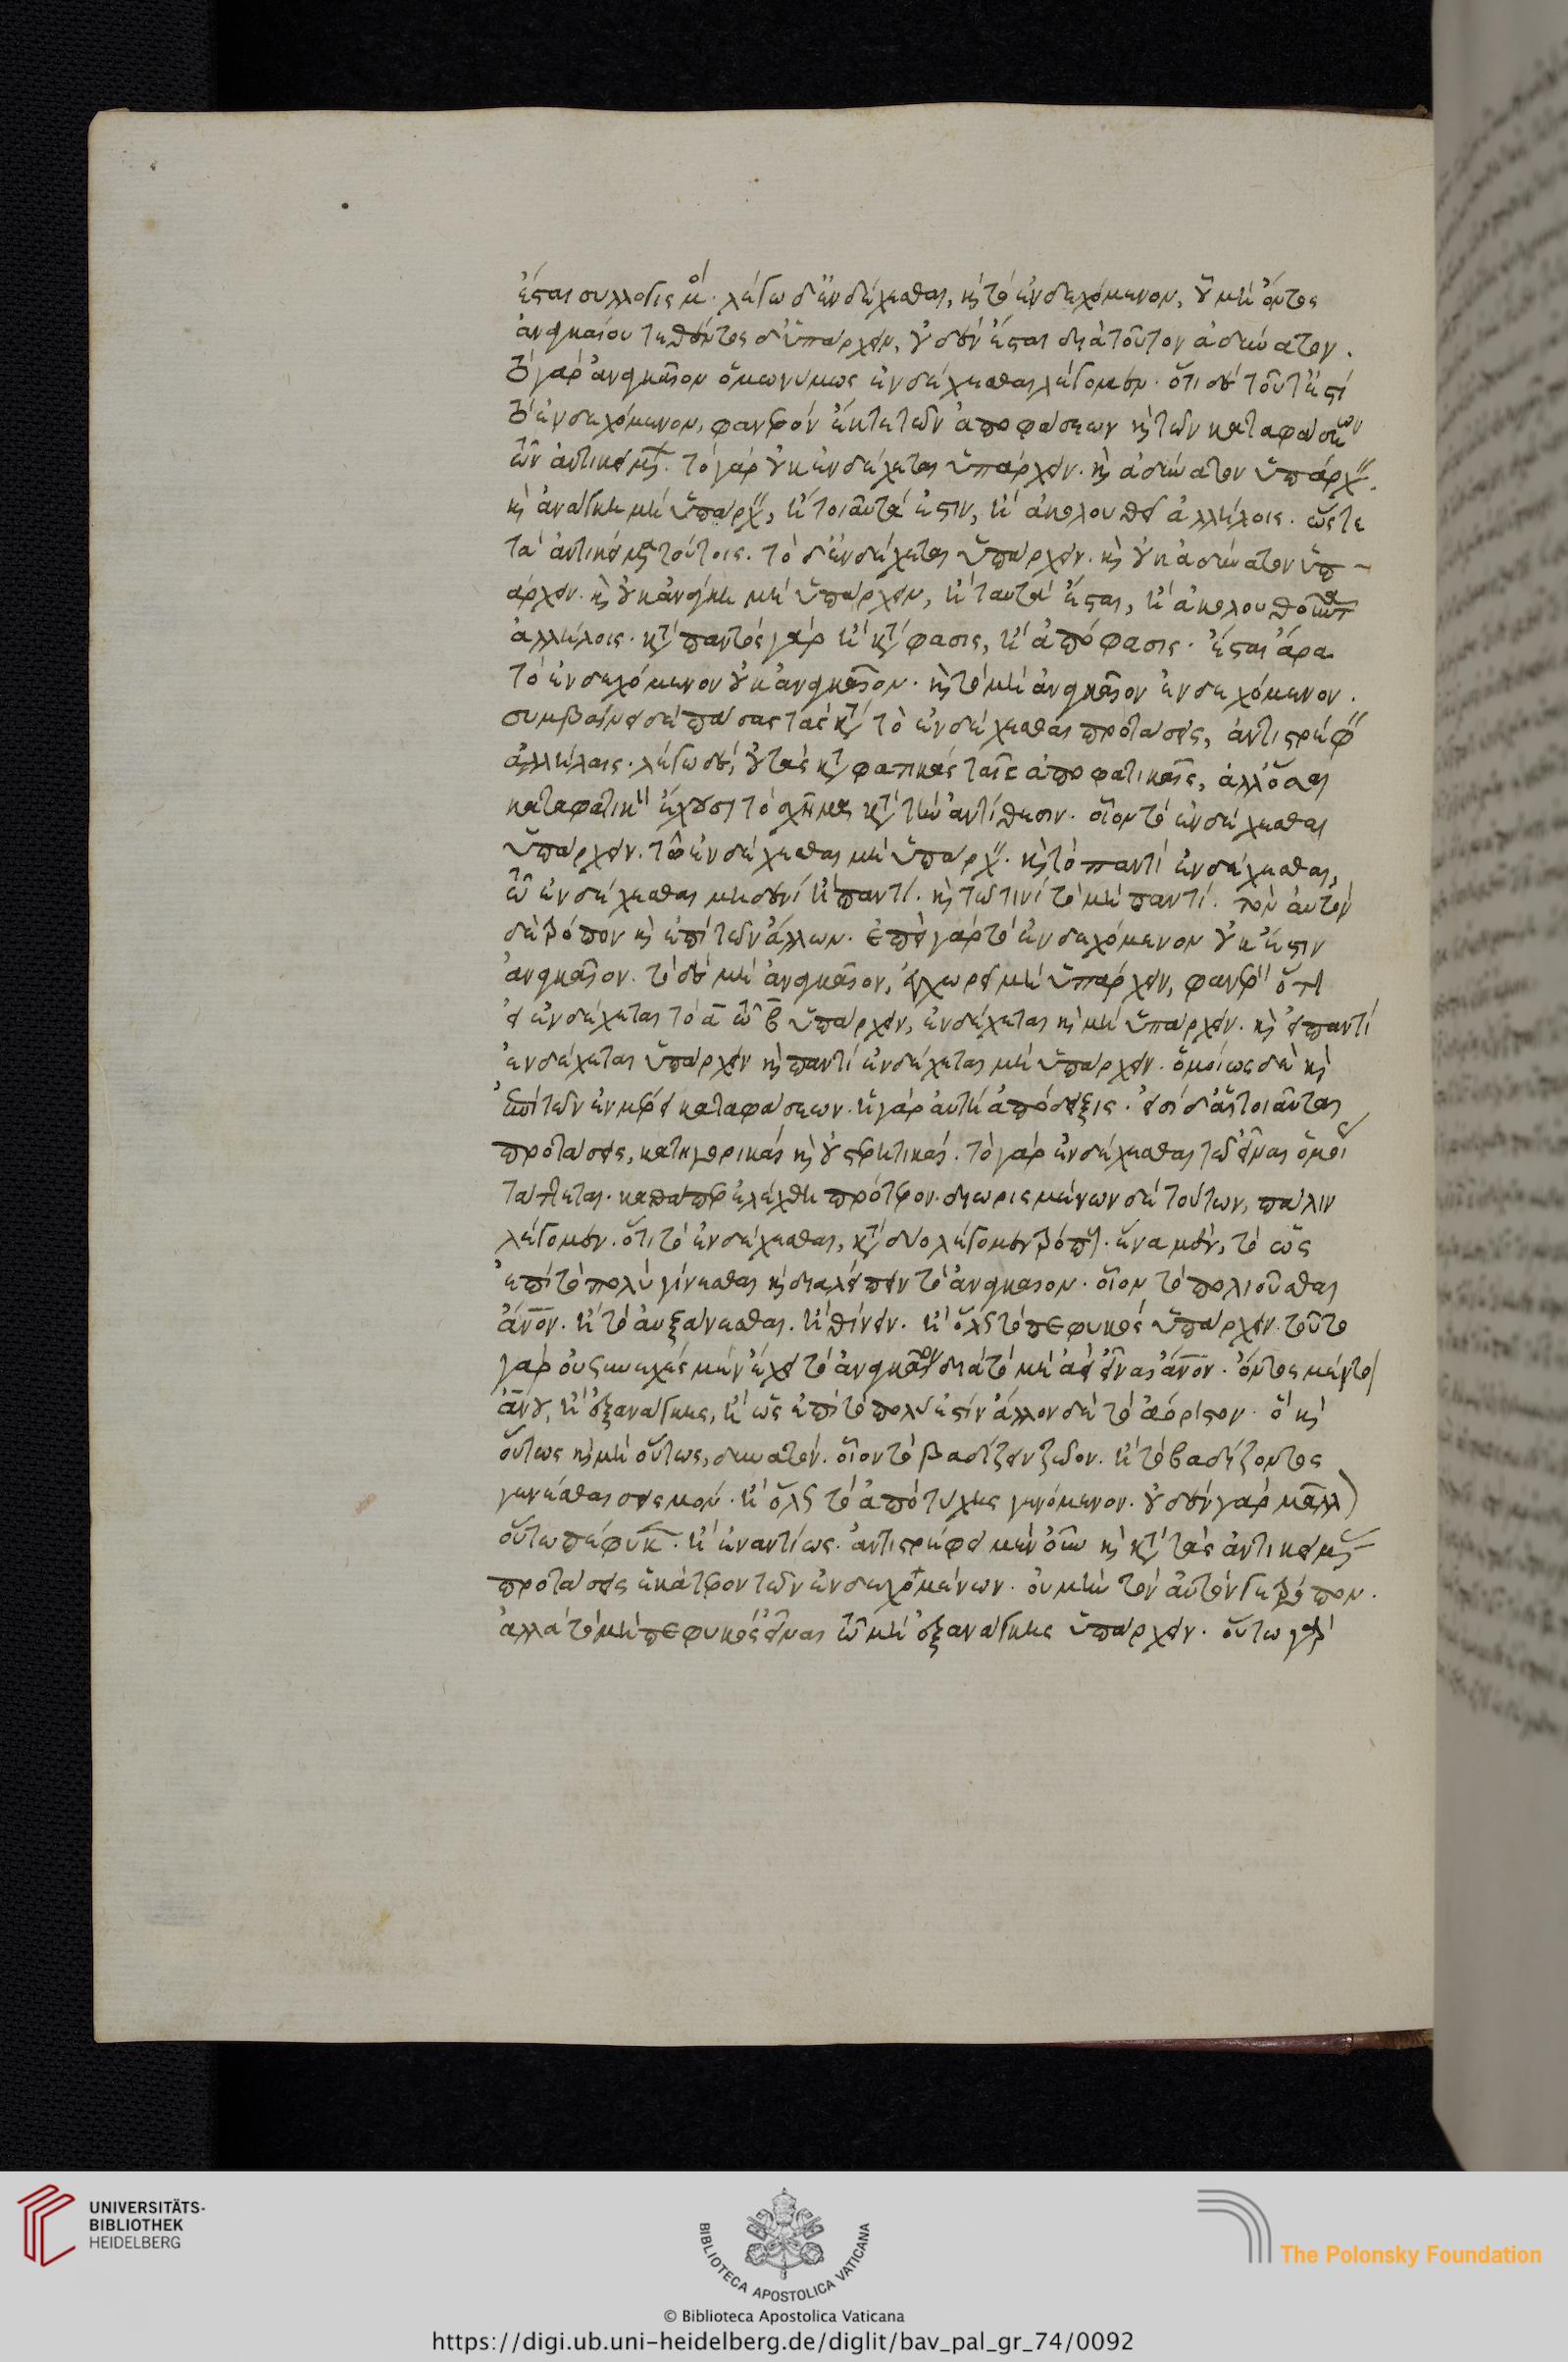 ἔσται συλλογισμός· λέγω δ' ἐνδέχεσθαι, καὶ τὸ ἐνδεχόμενον, οὗ μὴ ὄντος
ἀναγκαίου τεθέντος δ' ὑπάρχειν, οὐδὲν ἔσται διὰ τοῦτον ἀδύνατον.
τὸ γὰρ ἀναγκαῖον ὁμωνύμως ἐνδέχεσθαι λέγομεν. ὅτι δὲ τοῦτ' ἐστὶ
τὸ ἐνδεχόμενον, φανερὸν ἔκ τε τῶν ἀποφάσεων καὶ τῶν καταφάσεων
τῶν ἀντικειμένων. τὸ γὰρ οὐκ ἐνδέχεται ὑπάρχειν. καὶ ἀδύνατον ὑπάρχειν.
καὶ ἀνάγκη μὴ ὑπάρχειν, ἢ τοιαῦτά ἐστιν, ἢ ἀκολουθεῖ ἀλλήλοις. ὥστε
τὰ ἀντικείμενα τούτοις. τὸ δ' ἐνδέχεται ὑπάρχειν. καὶ οὐκ ἀδύνατον ὑπ-
άρχειν. καὶ οὐκ ἀνάγκη μὴ ὑπάρχειν, ἢ ταυτὰ ἔσται, ἢ ἀκολουθοῦντα
ἀλλήλοις. κατὰ παντὸς γὰρ ἢ κατάφασις, ἢ ἀπόφασις. ἔσται ἄρα
τὸ ἐνδεχόμενον οὐκ ἀναγκαῖον. καὶ τὸ μὴ ἀναγκαῖον ἐνδεχόμενον.
συμβαίνει δὲ πάσας τὰς κατὰ τὸ ἐνδέχεσθαι προτάσεις, ἀντιστρέφειν
ἀλλήλαις. λέγω δὲ, οὐ τὰς καταφατικὰς ταῖς ἀποφατικαῖς, ἀλλ' ὅσαι
καταφατικὸν ἔχουσι τὸ σχῆμα κατὰ τὴν ἀντίθεσιν. οἷον τὸ ἐνδέχεσθαι
ὑπάρχειν. τῷ ἐνδέχεσθαι μὴ ὑπάρχειν. καὶ τὸ παντὶ ἐνδέχεσθαι,
τῷ ἐνδέχεσθαι μηδενὶ ἢ παντί. καὶ τῷ τινὶ τὸ μὴ παντί. τὸν αὐτὸν
δὲ τρόπον καὶ ἐπὶ τῶν ἄλλων. ἐπεὶ γὰρ τὸ ἐνδεχόμενον οὐκ ἔστιν
ἀναγκαῖον. τὸ δὲ μὴ ἀναγκαῖον, ἐγχωρεῖ μὴ ὑπάρχειν, φανερὸν ὅτι
εἰ ἐνδέχεται τὸ α τῷ β ὑπάρχειν, ἐνδέχεται καὶ μὴ ὑπάρχειν. καὶ εἰ παντὶ
ἐνδέχεται ὑπάρχειν καὶ παντὶ ἐνδέχεται μὴ ὑπάρχειν. ὁμοίως δὲ καὶ
ἐπὶ τῶν ἐν μέρει καταφάσεων. ἡ γὰρ αὐτὴ ἀπόδειξις. εἰσὶ δ' αἱ τοιαῦται
προτάσεις, κατηγορικαὶ καὶ οὐ στερητικαί. τὸ γὰρ ἐνδέχεσθαι τῷ εἶναι ὁμοίως
τάττεται. καθάπερ ἐλέχθη πρότερον. διωρισμένων δὲ τούτων, πάλιν
λέγομεν. ὅτι τὸ ἐνδέχεσθαι, κατὰ δύο λέγομεν τρόπους. ἕνα μὲν, τὸ ὡς
ἐπὶ τὸ πολὺ γίνεσθαι καὶ διαλείπειν τὸ ἀναγκαῖον. οἷον τὸ πολιοῦσθαι
ἄνον. ἢ τὸ αὐξάνεσθαι. ἢ φθίνειν. ἢ ὅλως τὸ πεφυκὸς ὑπάρχειν. τοῦτο
γὰρ οὐ συνεχὲς μὲν ἔχει τὸ ἀναγκαῖον διὰ τὸ μὴ ἀεὶ εἶναι ἄνον. ὄντος μέντοι
ἀνου, ἢ ἐξ ἀνάγκης, ἢ ὡς ἐπὶ τὸ πολύ ἐστιν ἄλλον δὲ τὸ ἀόριστον. ὃ καὶ
οὕτως καὶ μὴ οὕτως, δυνατόν. οἷον τὸ βαδίζειν ζῷον. ἢ τὸ βαδίζοντος
γενέσθαι σεισμόν. ἢ ὅλως τὸ ἀπὸ τύχης γινόμενον. οὐδὲν γὰρ μᾶλλον
οὕτω πέφυκεν. ἢ ἐναντίως. ἀντιστρέφει μὲν οὖν καὶ κατὰ τὰς ἀντικειμένας
προτάσεις ἑκάτερον τῶν ἐνδεχομένων. οὐ μὴν τὸν αὐτόν γε τρόπον.
ἀλλὰ τὸ μὲν πεφυκὸς εἶναι τῷ μὴ ἐξ ἀνάγκης ὑπάρχειν. οὕτω γὰρ
UNIVERSITÄTS-
BIBLIOTHEK
HEIDELBERG
BIBLIOTECA APOSTOLICA VATICANA
The Polonsky Foundation
© Biblioteca Apostolica Vaticana
https://digi.ub.uni-heidelberg.de/diglit/bav_pal_gr_74/0092